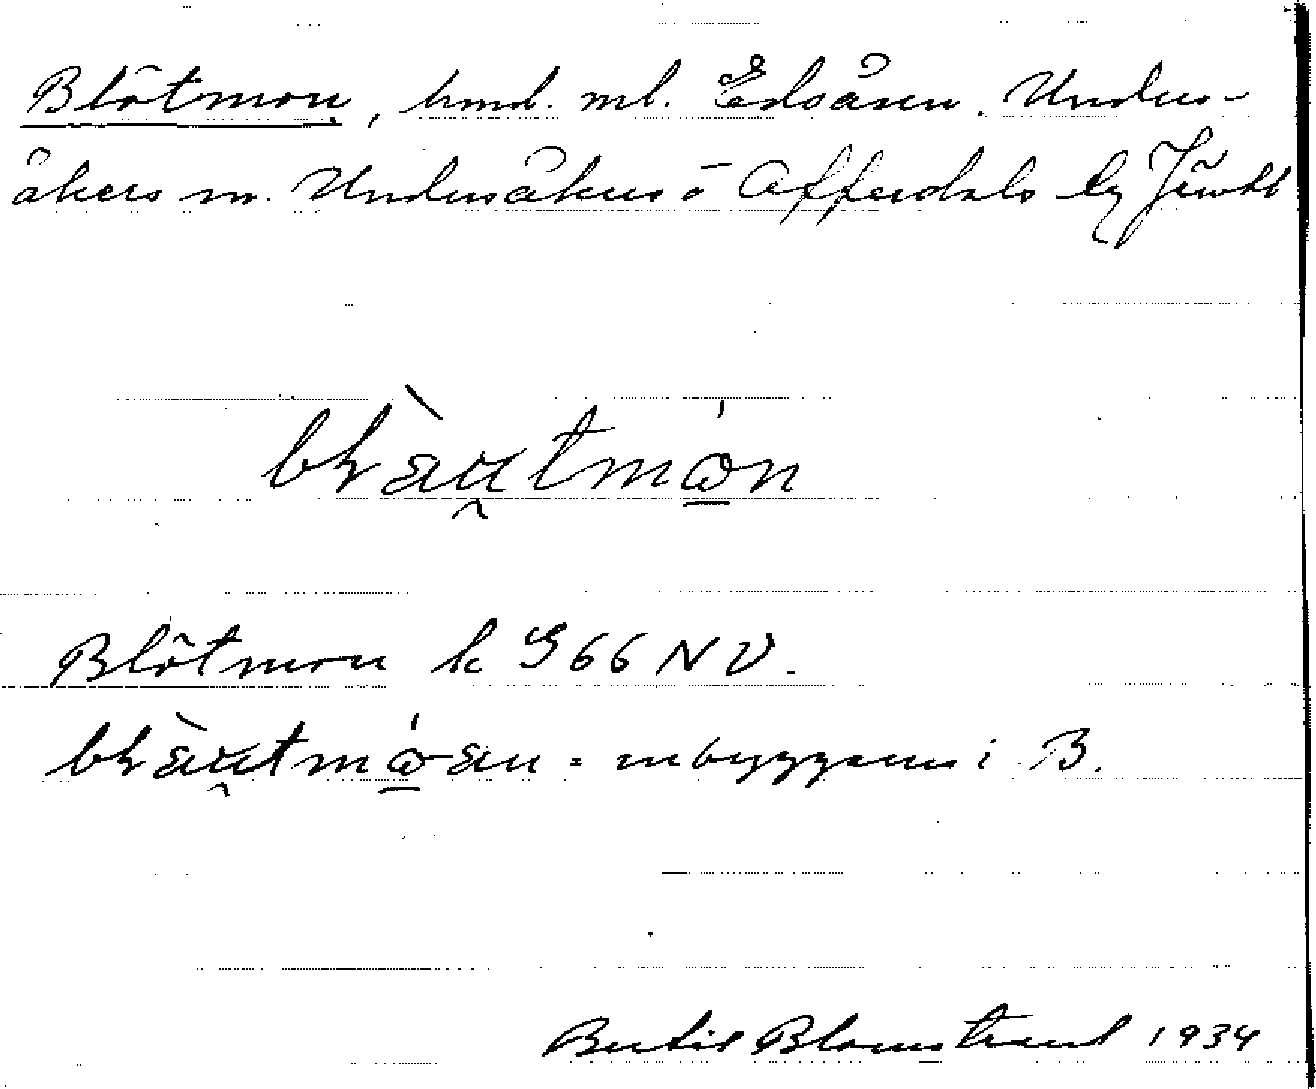 Blötmon, hmd. ml. Edsåsen. Unders-
åkers sn. Undersåkers o Offerdals lg Jämtl
blàu̯tmó̠n
Blötmon k G 66 NV.
blàu̯tmó̠an = inbyggarna i B.
Bertil Blomstrand 1934